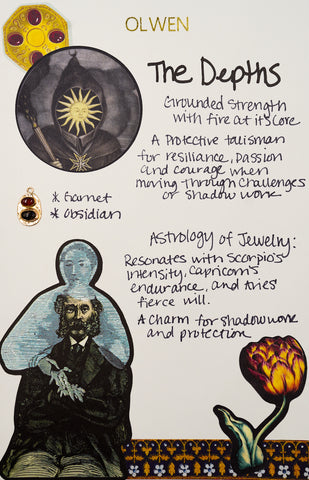 OLWEN
The Depths
Grounded Strength
with fire at its core
A Protective talisman
for resiliance, passion
and courage when
moving through challenges
or Shadow work
* Garnet
* Obsidian
Astrology of Jewelry:
Resonates with Scorpio's
intensity, Capricorn's
endurance, and Aries'
fierce will.
A Charm for shadow work
and protection